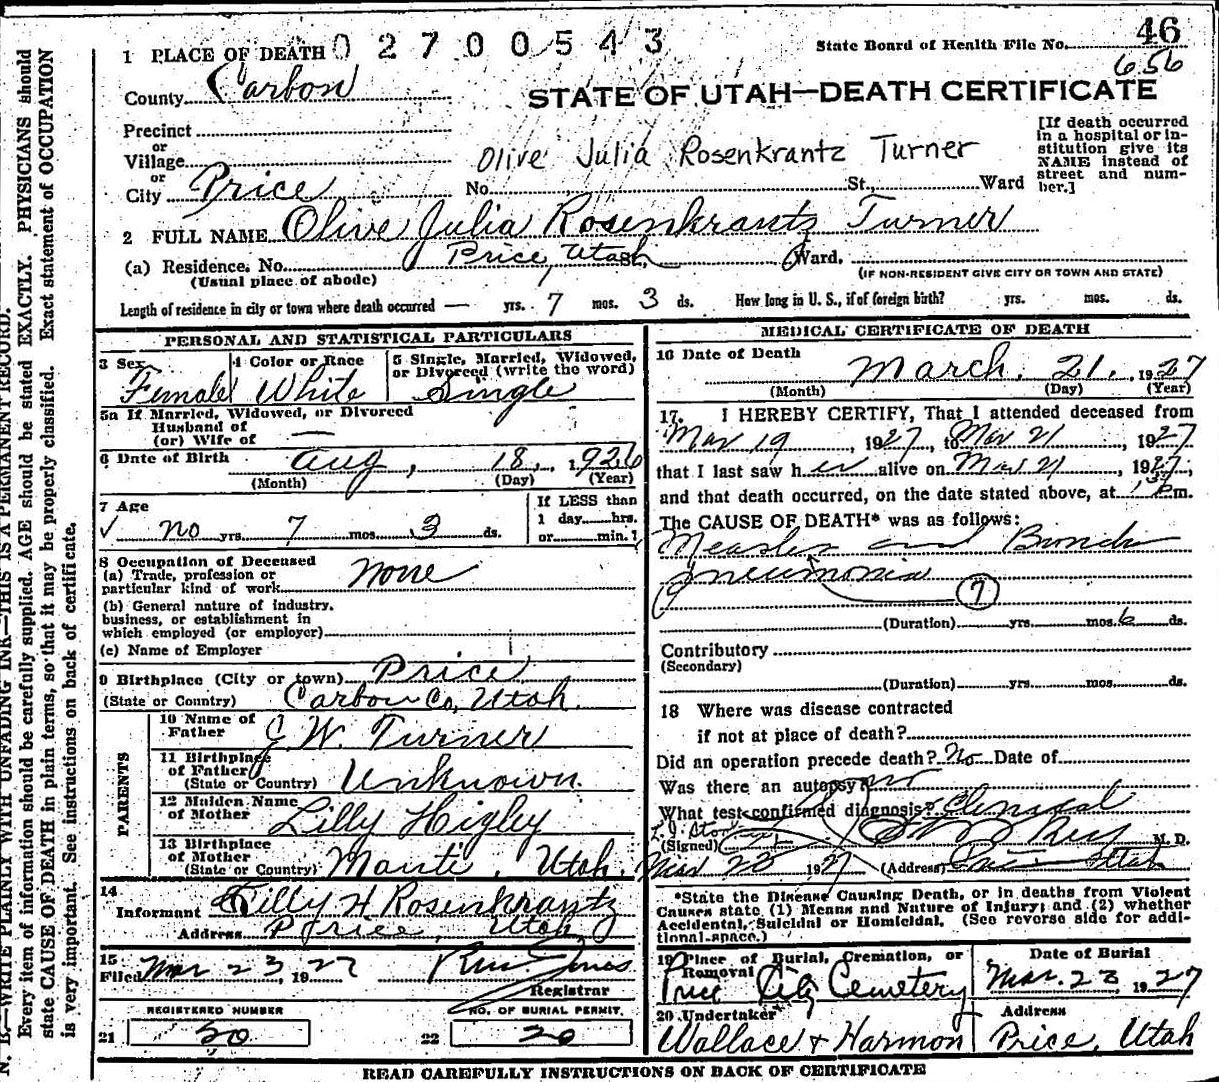 46
State Board of Health File No.
656
1 PLACE OF DEATH 02700543
County Carbon
STATE OF UTAH—DEATH CERTIFICATE
Precinct
or
Village
or
City Price
Olive Julia Rosenkrantz Turner
No. St., Ward
[If death occurred
in a hospital or in-
stitution give its
NAME instead of
street and num-
ber.]
2 FULL NAME Olive Julia Rosenkrantz Turner
(a) Residence. No. Price, Utah St., Ward.
(Usual place of abode)
(IF NON-RESIDENT GIVE CITY OR TOWN AND STATE)
Length of residence in city or town where death occurred — yrs. 7 mos. 3 ds. How long in U. S., if of foreign birth? yrs. mos. ds.
PERSONAL AND STATISTICAL PARTICULARS
3 Sex
Female
4 Color or Race
White
5 Single, Married, Widowed,
or Divorced (write the word)
Single
5a If Married, Widowed, or Divorced
Husband of
(or) Wife of —
6 Date of Birth Aug, 18, 1926
(Month) (Day) (Year)
7 Age
✓ no yrs. 7 mos. 3 ds.
If LESS than
1 day hrs.
or min.
8 Occupation of Deceased
(a) Trade, profession or
particular kind of work None
(b) General nature of industry,
business, or establishment in
which employed (or employer)
(c) Name of Employer
9 Birthplace (City or town) Price
(State or Country) Carbon Co, Utah.
PARENTS
10 Name of
Father J W. Turner
11 Birthplace
of Father
(State or Country) Unknown.
12 Maiden Name
of Mother Lilly Higley
13 Birthplace
of Mother
(State or Country) Manti, Utah.
14
Informant Lilly H Rosenkrantz
Address Price, Utah
15
Filed Mar 23, 1927
Registrar
REGISTERED NUMBER
21 20
NO. OF BURIAL PERMIT.
22 20
MEDICAL CERTIFICATE OF DEATH
16 Date of Death
March. 21. 1927
(Month) (Day) (Year)
17. I HEREBY CERTIFY, That I attended deceased from
Mar 19, 1927, to Mar 21, 1927
that I last saw her alive on Mar 21, 1927,
and that death occurred, on the date stated above, at 1 30 p m.
The CAUSE OF DEATH* was as follows:
Measles and Bronch
pneumonia
7
(Duration) yrs. mos. 6 ds.
Contributory
(Secondary)
(Duration) yrs. mos. ds.
18 Where was disease contracted
if not at place of death?
Did an operation precede death? No Date of
Was there an autopsy? no
What test confirmed diagnosis? Clinical
(Signed) M. D.
Mar 23 1927 (Address) Price Utah
*State the Disease Causing Death, or in deaths from Violent
Causes state (1) Means and Nature of Injury; and (2) whether
Accidental, Suicidal or Homicidal. (See reverse side for addi-
tional space.)
19 Place of Burial, Cremation, or
Removal
Price City Cemetery
Date of Burial
Mar. 23, 1927
20 Undertaker
Wallace & Harmon
Address
Price, Utah
READ CAREFULLY INSTRUCTIONS ON BACK OF CERTIFICATE
N. B.—WRITE PLAINLY WITH UNFADING INK—THIS IS A PERMANENT RECORD.
Every item of information should be carefully supplied. AGE should be stated EXACTLY. PHYSICIANS should
state CAUSE OF DEATH in plain terms, so that it may be properly classified. Exact statement of OCCUPATION
is very important. See instructions on back of certificate.